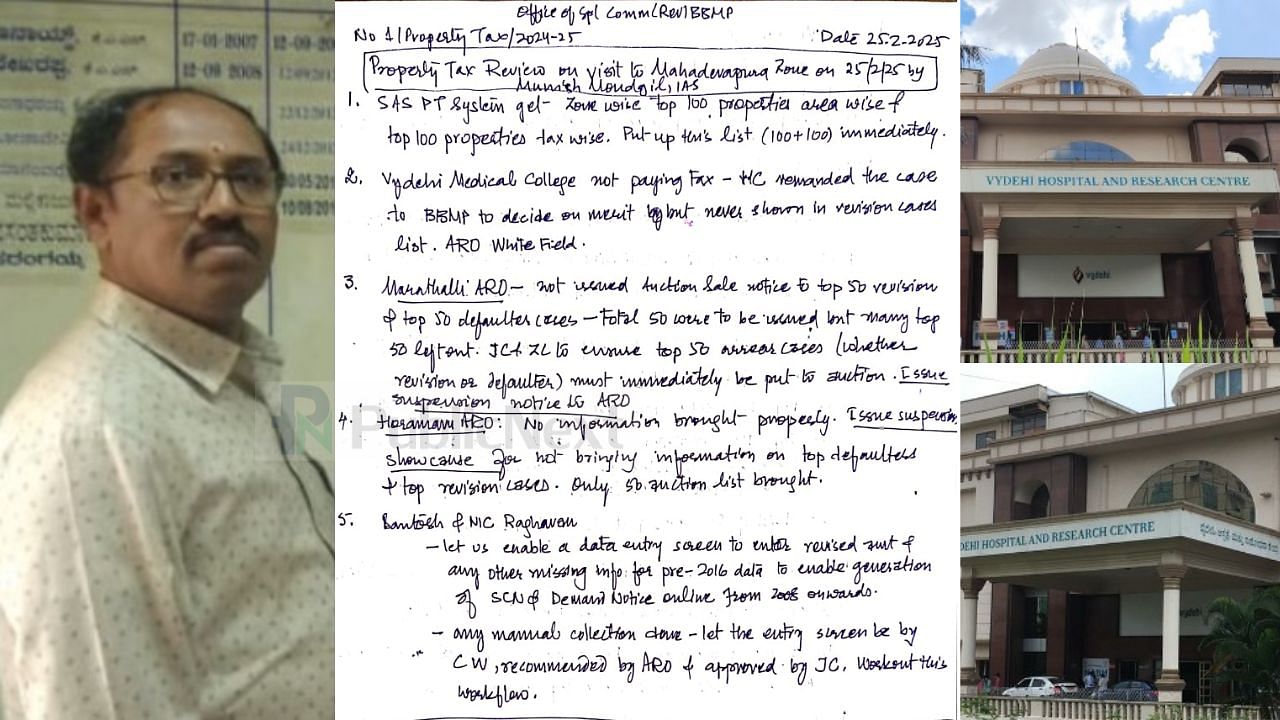 17-01-2007
12-09-20
12-09-2008
12/09/201
Office of Spl Comm(Rev)BBMP
No 1/Property Tax/2024-25
Date 25-2-2025
Property Tax Review on visit to Mahadevapura Zone on 25/2/25 by
Munish Moudgil, IAS
1. SAS PT System get - Zone wise top 100 properties area wise &
top 100 properties tax wise. Put up this list (100+100) immediately.
2. Vydehi Medical College not paying Tax - HC remanded the case
to BBMP to decide on merit but never shown in revision cases
list. ARO White Field.
3. Marathalli ARO - not issued Auction Sale notice to top 50 revision
& top 50 defaulter cases - Total 50 were to be issued but many top
50 left out. JC & ZC to ensure top 50 arrear cases (whether
revision or defaulter) must immediately be put to auction. Issue
suspension notice to ARO
4. Horamavu ARO: No information brought properly. Issue suspension
showcause for not bringing information on top defaulters
& top revision cases. Only 50 auction list brought.
5. Santosh & NIC Raghavan
- let us enable a data entry screen to enter revised amt &
any other missing info for pre-2016 data to enable generation
of SCN & Demand Notice online from 2008 onwards.
- any manual collection done - let the entry screen be by
CW, recommended by ARO & approved by JC. Workout this
workflow.
PublicNext
VYDEHI HOSPITAL AND RESEARCH CENTRE
vydehi
DEHI HOSPITAL AND RESEARCH CENTRE
vydehi